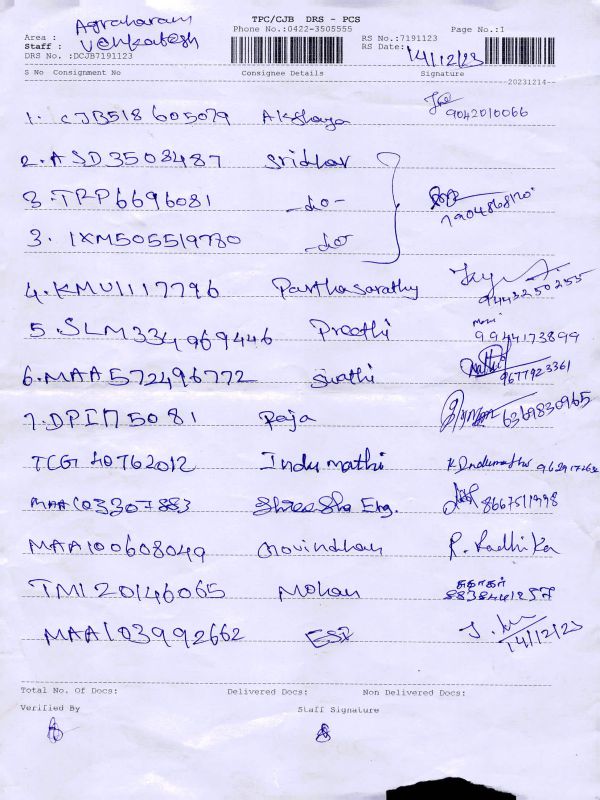 TPC/CJB DRS - PCS
Area : Agraharam Phone No.:0422-3505555 RS No.:7191123 Page No.:1
Staff : Venkatesh RS Date: 14/12/23
DRS No. :DCJB7191123
S No Consignment No Consignee Details Signature
20231214
1. CJB518605079 Akshaya 9042010066
2. ASD3503487 Sridhar
3. TRP6696081 -do- 7904868120
3. IXM505519780 -do-
4. KMU1117796 Parthasarathy 9443250255
5. SLM334969446 Preethi 9944173899
6. MAA572496772 Swathi 9677923361
7. DPI175081 Raja 6369830965
TCG40762012 Indumathi
MAA103307883 Shreesha Eng. 8667511998
MAA100608049 Govindhan R. Radhika
TMI20146065 Mohan
MAA103992662 ESI 14/12/23
Total No. Of Docs: Delivered Docs: Non Delivered Docs:
Verified By Staff Signature